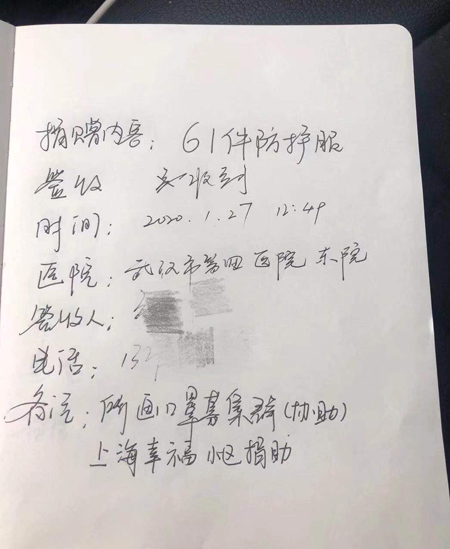 捐赠内容：61件防护服
签收 已收到
时间：2020.1.27 12:49
医院：武汉市第四医院 东院
签收人：
电话：132
备注：口罩募集群(协助)
上海幸福小区捐助